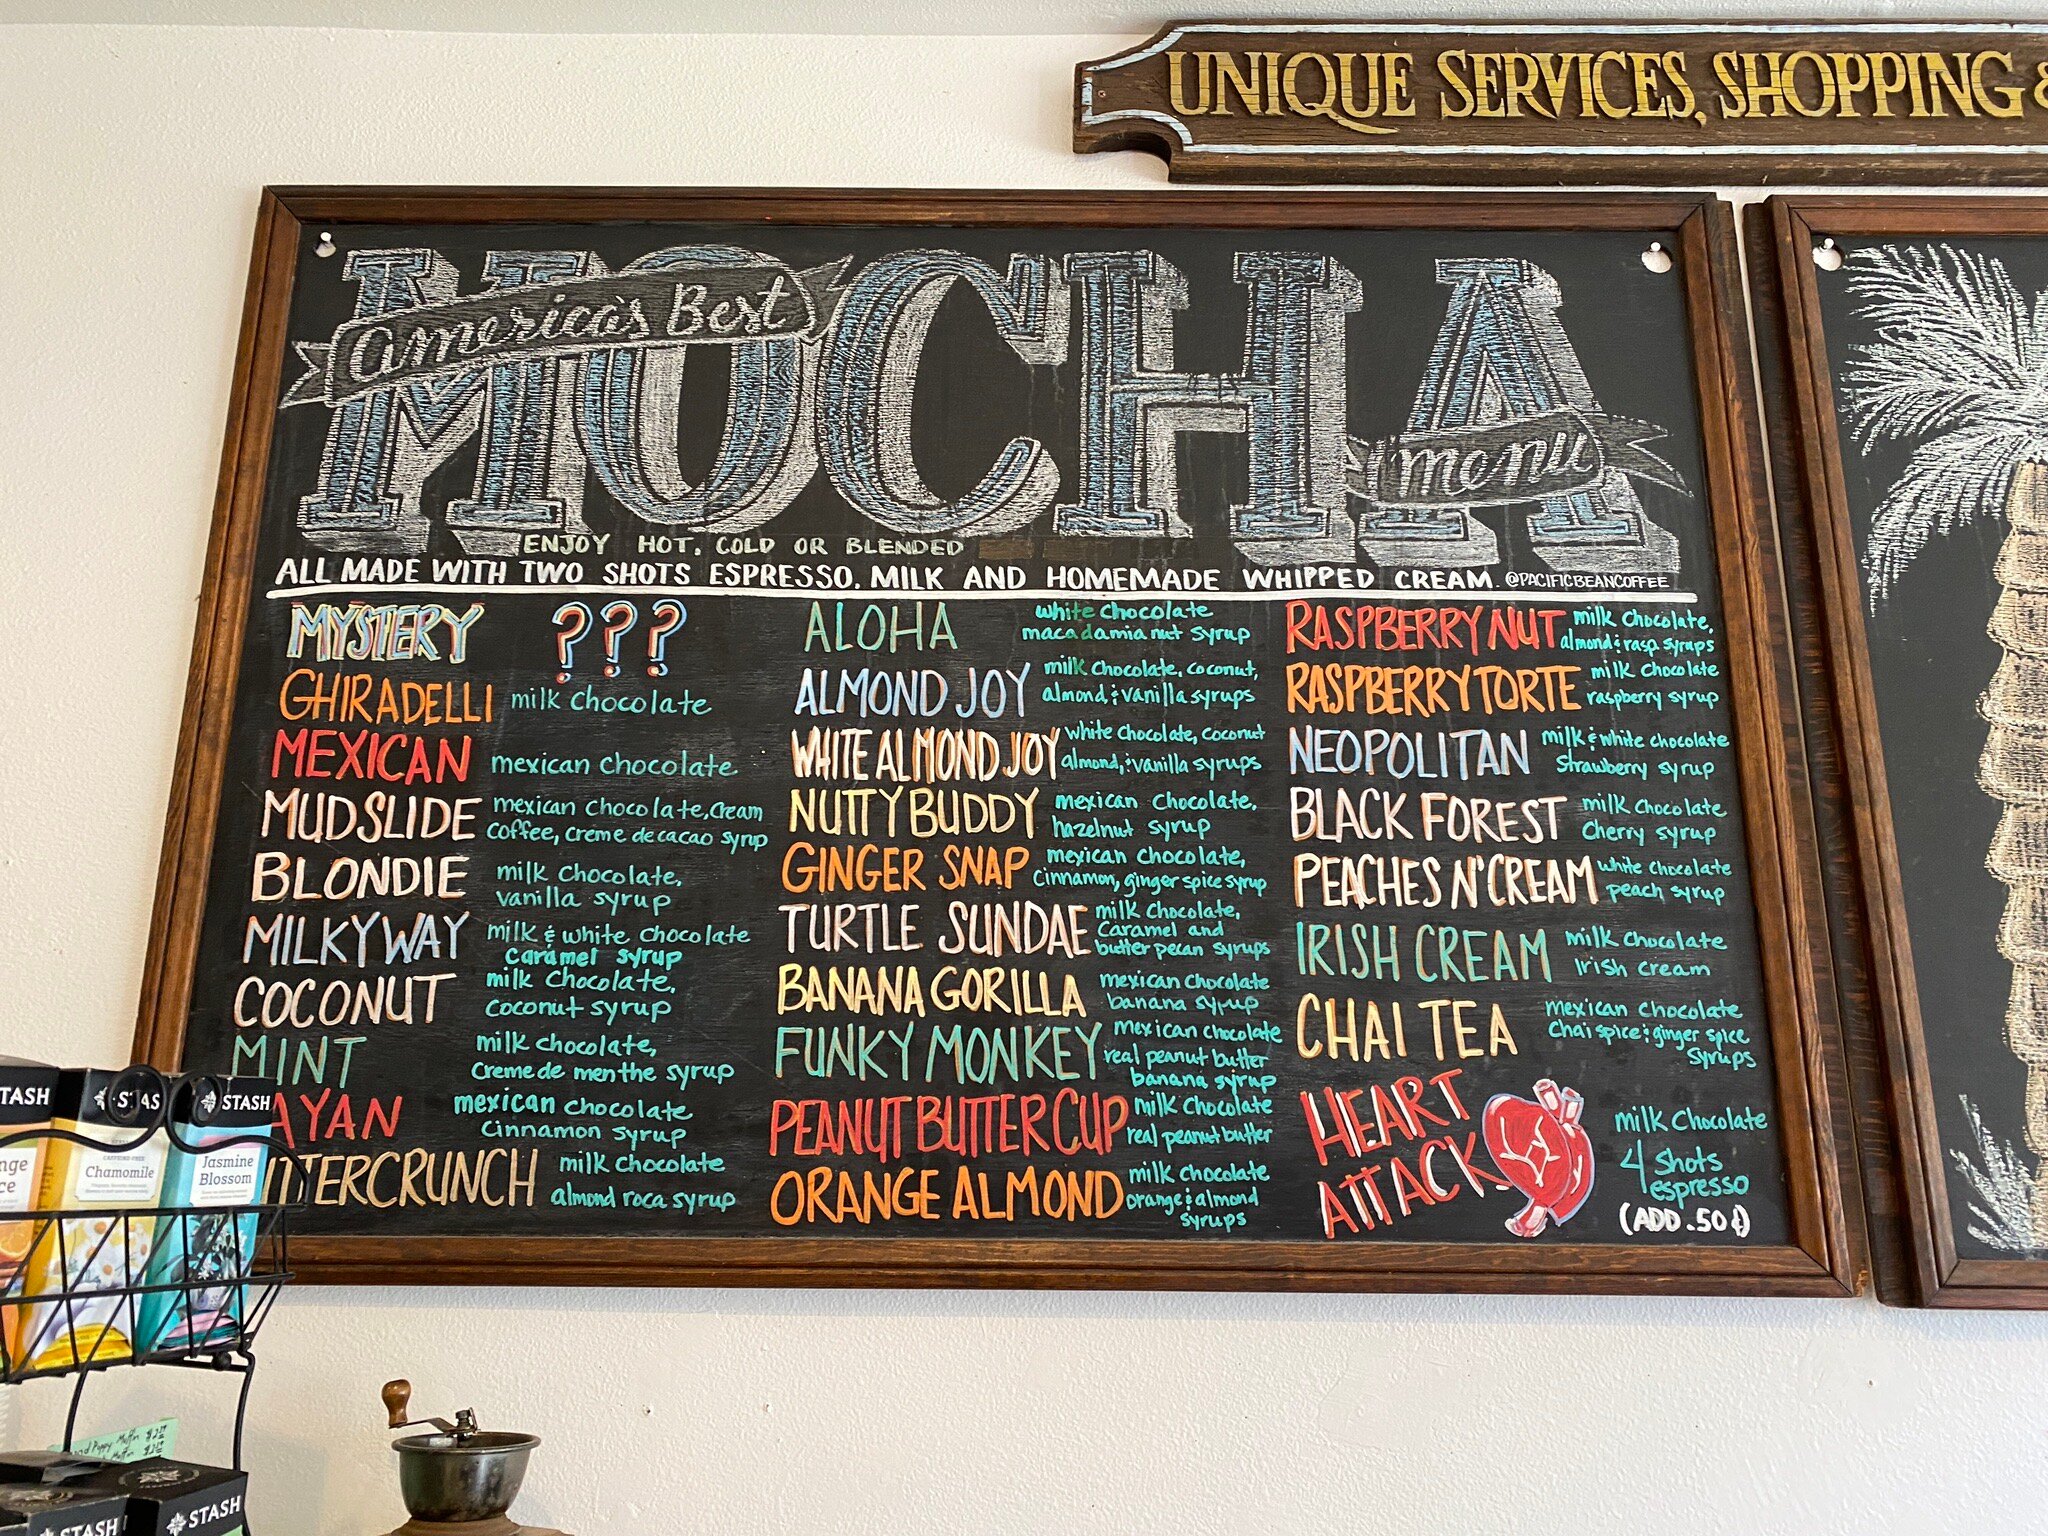 UNIQUE SERVICES, SHOPPING &
America's Best
MOCHA
menu
ENJOY HOT, COLD OR BLENDED
ALL MADE WITH TWO SHOTS ESPRESSO, MILK AND HOMEMADE WHIPPED CREAM. @PACIFICBEANCOFFEE
MYSTERY ? ? ?
GHIRADELLI milk chocolate
MEXICAN mexican chocolate
MUDSLIDE mexican chocolate, cream
coffee, creme de cacao syrup
BLONDIE milk chocolate,
vanilla syrup
MILKYWAY milk & white chocolate
caramel syrup
COCONUT milk chocolate,
coconut syrup
MINT milk chocolate,
creme de menthe syrup
AYAN mexican chocolate
cinnamon syrup
TTERCRUNCH milk chocolate
almond roca syrup
ALOHA white chocolate
macadamia nut syrup
ALMOND JOY milk chocolate, coconut,
almond & vanilla syrups
WHITE ALMOND JOY white chocolate, coconut
almond, & vanilla syrups
NUTTY BUDDY mexican chocolate,
hazelnut syrup
GINGER SNAP mexican chocolate,
cinnamon, ginger spice syrup
TURTLE SUNDAE milk chocolate,
caramel and
butter pecan syrups
BANANA GORILLA mexican chocolate
banana syrup
FUNKY MONKEY mexican chocolate
real peanut butter
banana syrup
PEANUT BUTTER CUP milk chocolate
real peanut butter
ORANGE ALMOND milk chocolate
orange & almond
syrups
RASPBERRY NUT milk chocolate,
almond & rasp syrups
RASPBERRY TORTE milk chocolate
raspberry syrup
NEOPOLITAN milk & white chocolate
strawberry syrup
BLACK FOREST milk chocolate
cherry syrup
PEACHES N' CREAM white chocolate
peach syrup
IRISH CREAM milk chocolate
irish cream
CHAI TEA mexican chocolate
chai spice & ginger spice
syrups
HEART
ATTACK
milk chocolate
4 shots
espresso
(ADD .50¢)
STASH
STASH
STASH
CAFFEINE-FREE
Chamomile
Jasmine
Blossom
Poppy Muffin
STASH
STASH